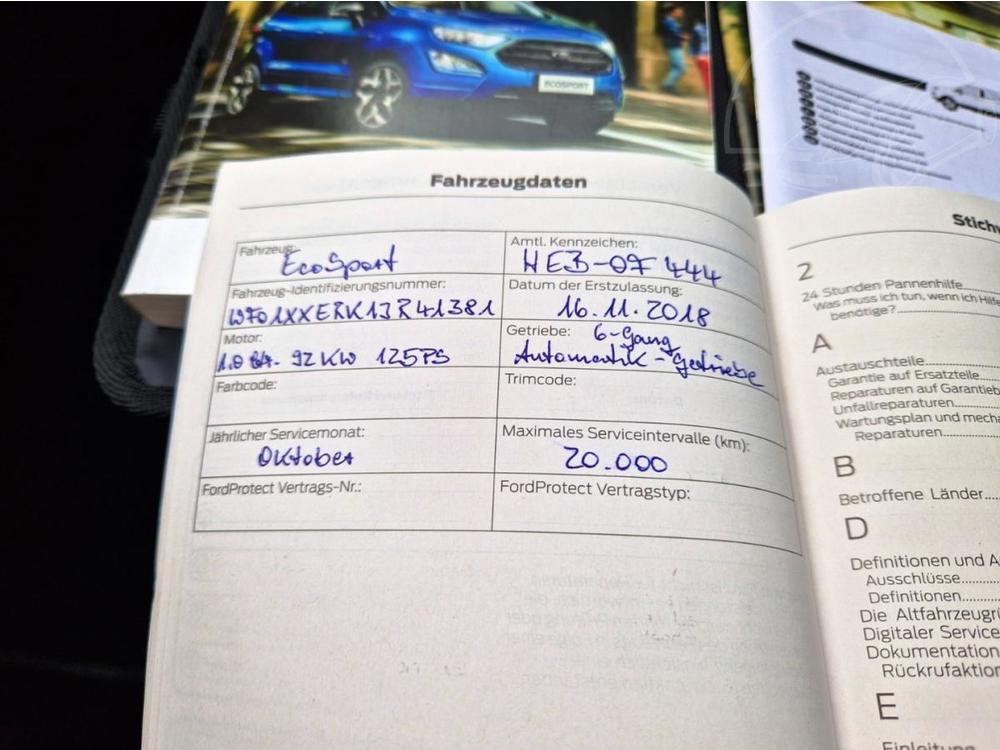 ECOSPORT
Fahrzeugdaten
Fahrzeug:
EcoSport
Amtl. Kennzeichen:
HEB-OF 444
Fahrzeug-Identifizierungsnummer:
WF01XXERK1JR41381
Datum der Erstzulassung:
16.11.2018
Motor:
92 KW 125PS
Getriebe: 6-Gang
Automatik-getriebe
Farbcode:
Trimcode:
Jährlicher Servicemonat:
Oktober
Maximales Serviceintervalle (km):
20.000
FordProtect Vertrags-Nr.:
FordProtect Vertragstyp:
Stichw
2
24 Stunden Pannenhilfe
Was muss ich tun, wenn ich Hilfe
benötige?
A
Austauschteile
Garantie auf Ersatzteile
Reparaturen auf Garantieb
Unfallreparaturen
Wartungsplan und mech
Reparaturen
B
Betroffene Länder
D
Definitionen und A
Ausschlüsse
Definitionen
Die Altfahrzeugri
Digitaler Service
Dokumentation
Rückrufaktion
E
Einleitung